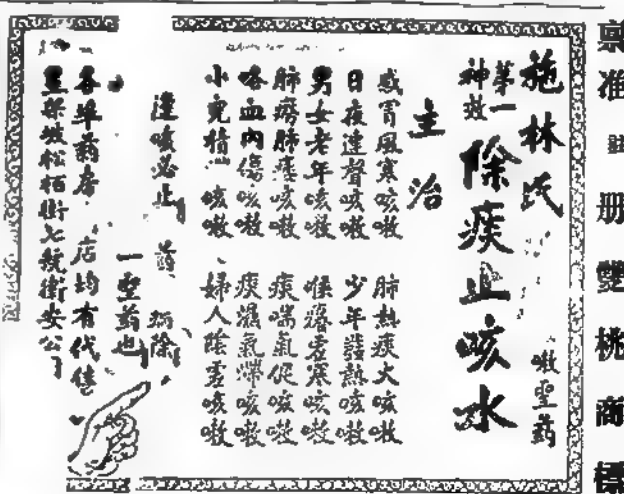 稟准註册雙桃商標
施林氏
嗽聖药
第一
神效
除痰止咳水
主治
感冒風寒咳嗽
肺熱痰火咳嗽
日夜連聲咳嗽
少年發熱咳嗽
男女老年咳嗽
喉癢虛寒咳嗽
肺癆肺痿咳嗽
痰喘氣促咳嗽
咯血內傷咳嗽
痰濕氣滯咳嗽
小兒積咳嗽
婦人陰虛咳嗽
咳必止
病除
一聖葯也
各埠葯房
店均有代售
星架坡松栢街七號衛安公司